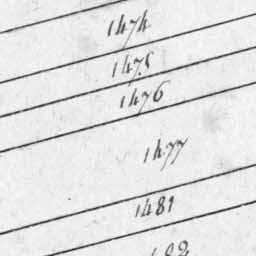 1474
1475
1476
1477
1481